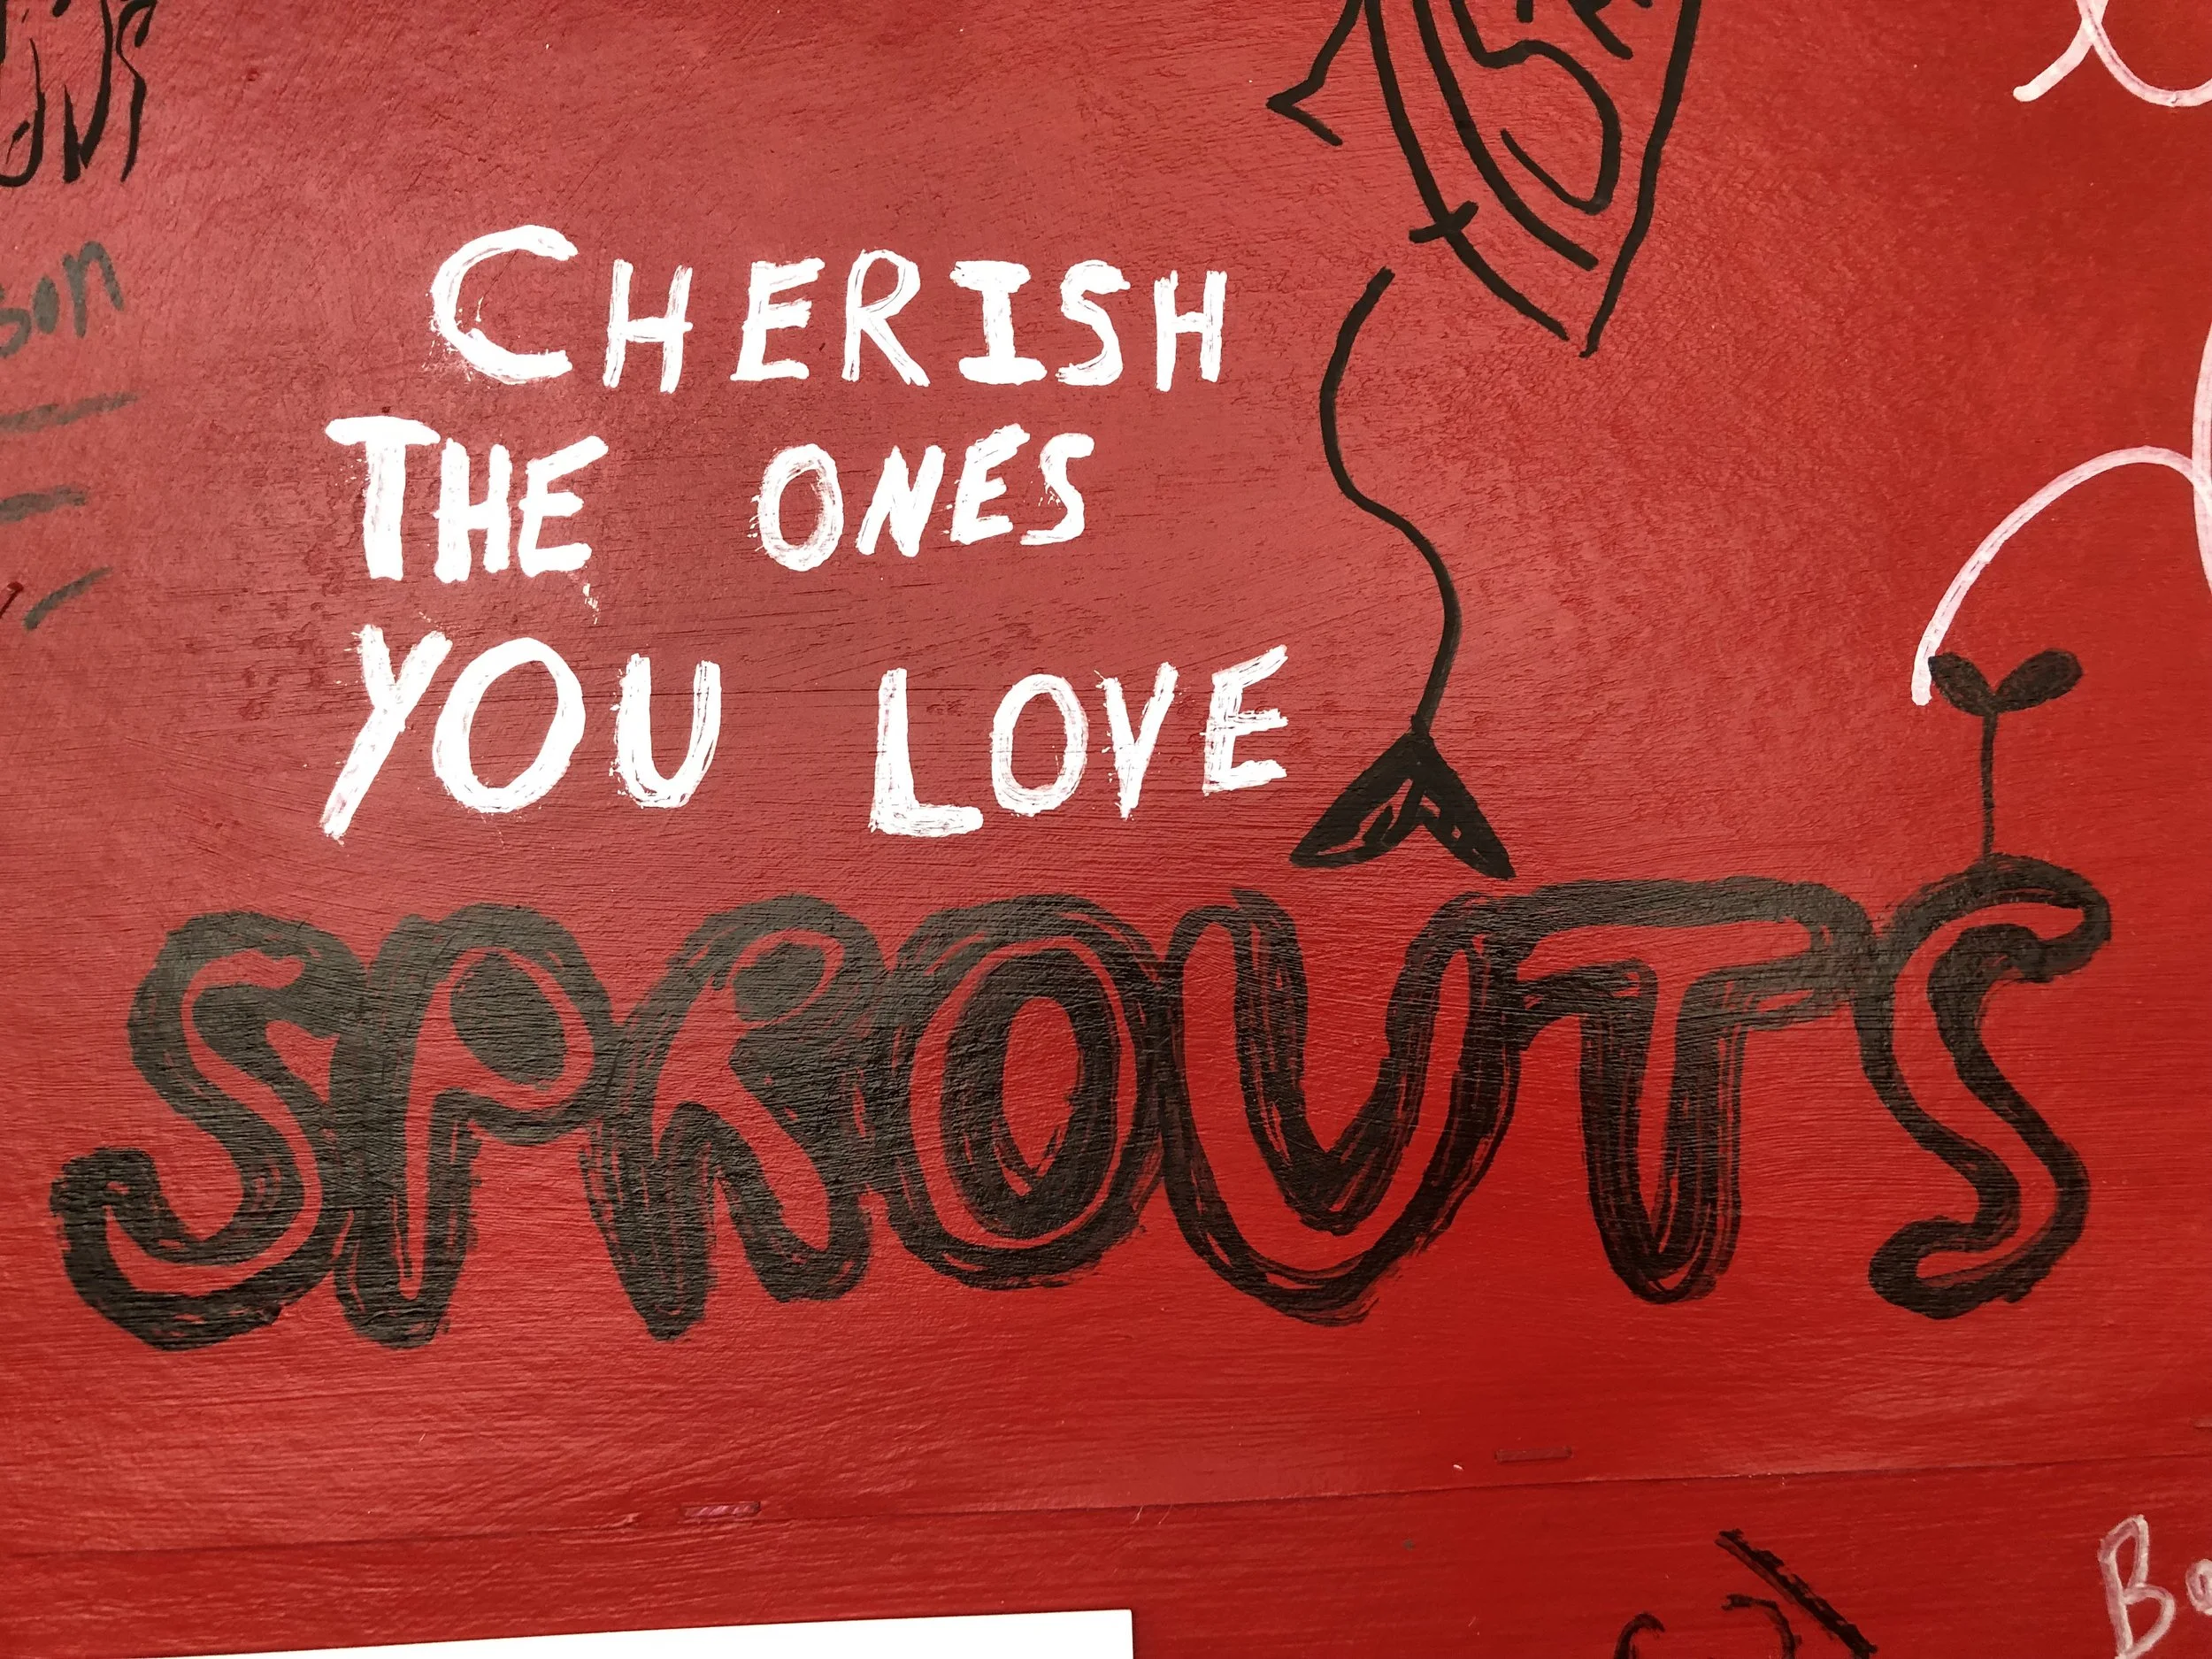 son
CHERISH
THE ONES
YOU LOVE
SPROUTS